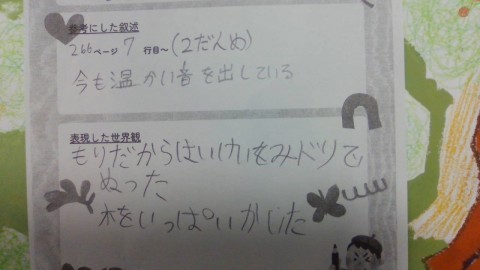 参考にした叙述
266ページ 7 行目～(2だんめ)
今も温かい音を出している
表現した世界観
もりだからはいけいをみドリで
ぬった
木をいっぱいかいた